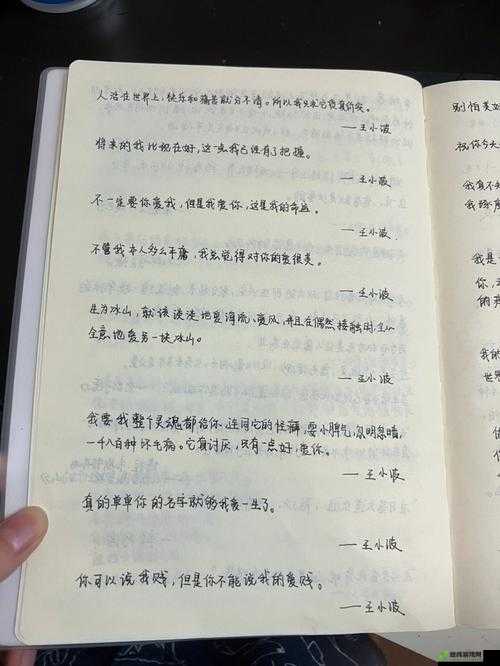 人活在世界上，快乐和痛苦本就分不清。所以我只求它货真价实。
——王小波
将来的我比现在好，这一点我已经有了把握。
——王小波
不一定要你爱我，但是我爱你，这是我的命运。
——王小波
不管我本人多么平庸，我总觉得对你的爱很美。
——王小波
生为冰山，就该淡淡地爱海流、爱风，并且在偶然接触时，全心
全意地爱另一块冰山。
——王小波
我要我整个灵魂都给你，连同它的怪癖，耍小脾气，忽明忽暗，
一千八百种坏毛病。它真讨厌，只有一点好，爱你。
——王小波
真的单单你的名字就够我爱一生了。
——王小波
你可以说我贱，但是你不能说我的爱贱。
——王小波
别怕美好
祝你今天
我真不
我是
你，
我的
世界